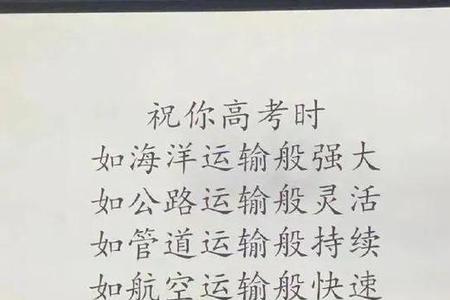 祝你高考时
如海洋运输般强大
如公路运输般灵活
如管道运输般持续
如航空运输般快速